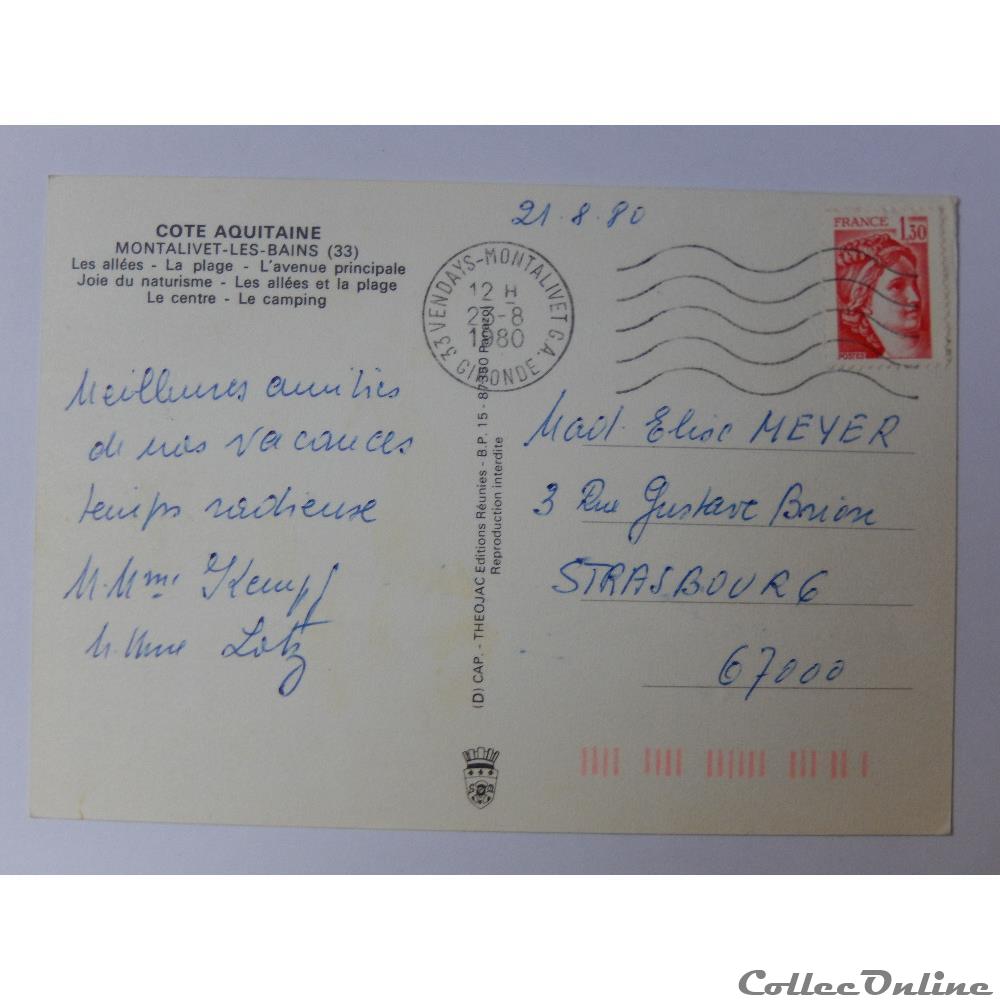 COTE AQUITAINE
MONTALIVET-LES-BAINS (33)
Les allées - La plage - L'avenue principale
Joie du naturisme - Les allées et la plage
Le centre - Le camping
21.8.80
33 VENDAYS-MONTALIVET G.A.
GIRONDE
12 H
23-8
1980
FRANCE
1,30
POSTES
Meilleures amitiés
de nos vacances
temps radieuse
M. Mme Kempf
M. Mme Lotz
(D) CAP. - THEOJAC Editions Réunies - B.P. 15 - 87350 Panazol
Reproduction interdite
Mad. Elise MEYER
3 Rue Gustave Brion
STRASBOURG
67000
CollecOnline